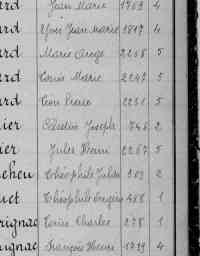 ard Jean Marie 1709 4
ard Yves Jean Marie 1817 4
ard Marie Ange 2208 5
ard Louis Marie 2247 5
ard Léon Pierre 2251 5
ier Célestin Joseph 746 2
ier Jules Henri 2267 5
cheu Théophile Jules 909 2
uet Théophile Eugène 468 1
rignac Louis Charles 278 1
rignac François Pierre 1729 4